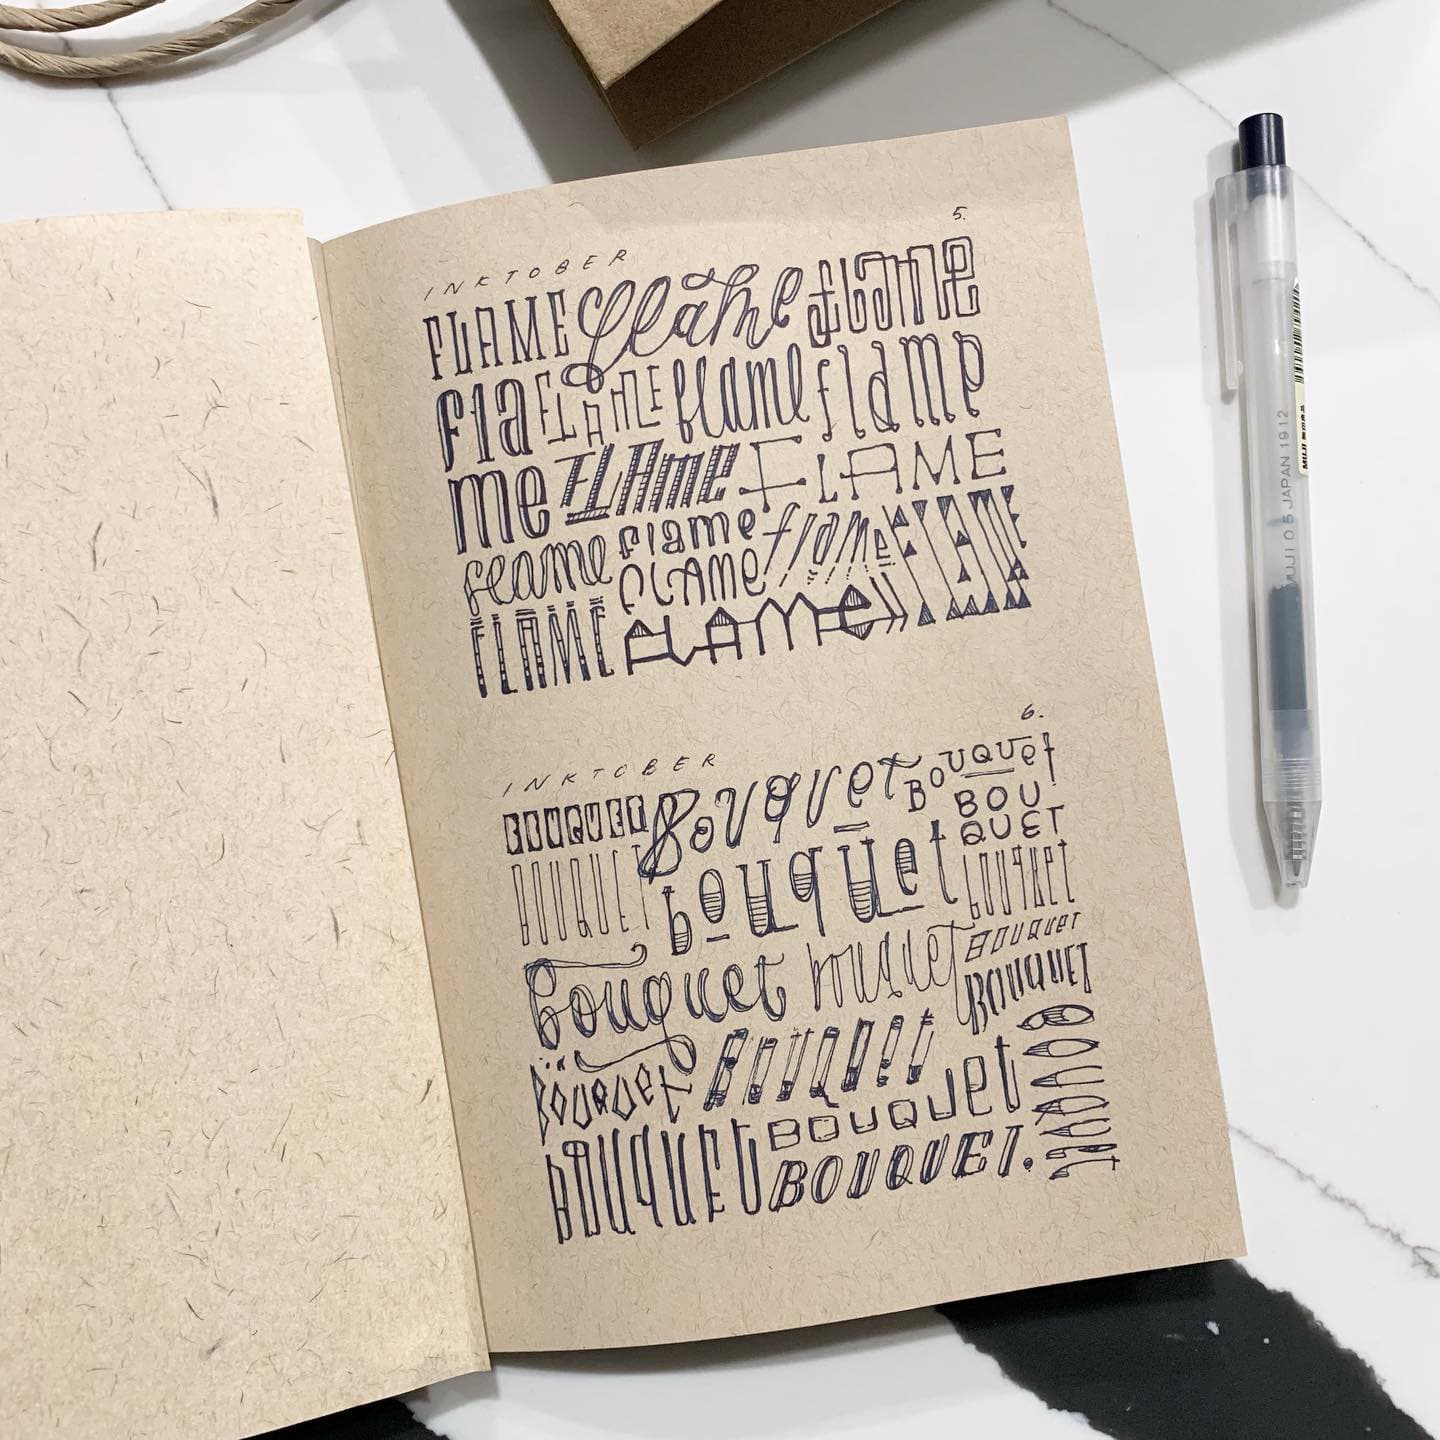 5.
INKTOBER
FLAME flame flame
fla FLAME flame flame
me FLAME FLAME
flame flame flame FLAME
FLAME
FLAME FLAME
6.
INKTOBER
BOUQUET Bouquet BOUQUET
BOU
QUET
BOUQUET bouquet bouquet
Bouquet bouquet BOUQUET
BOUQUET
BOUQUET BOUQUET bouquet
BOUQUET BOUQUET
BOUQUET.
MUJI 0.5 JAPAN 19 12
MUJI 無印良品